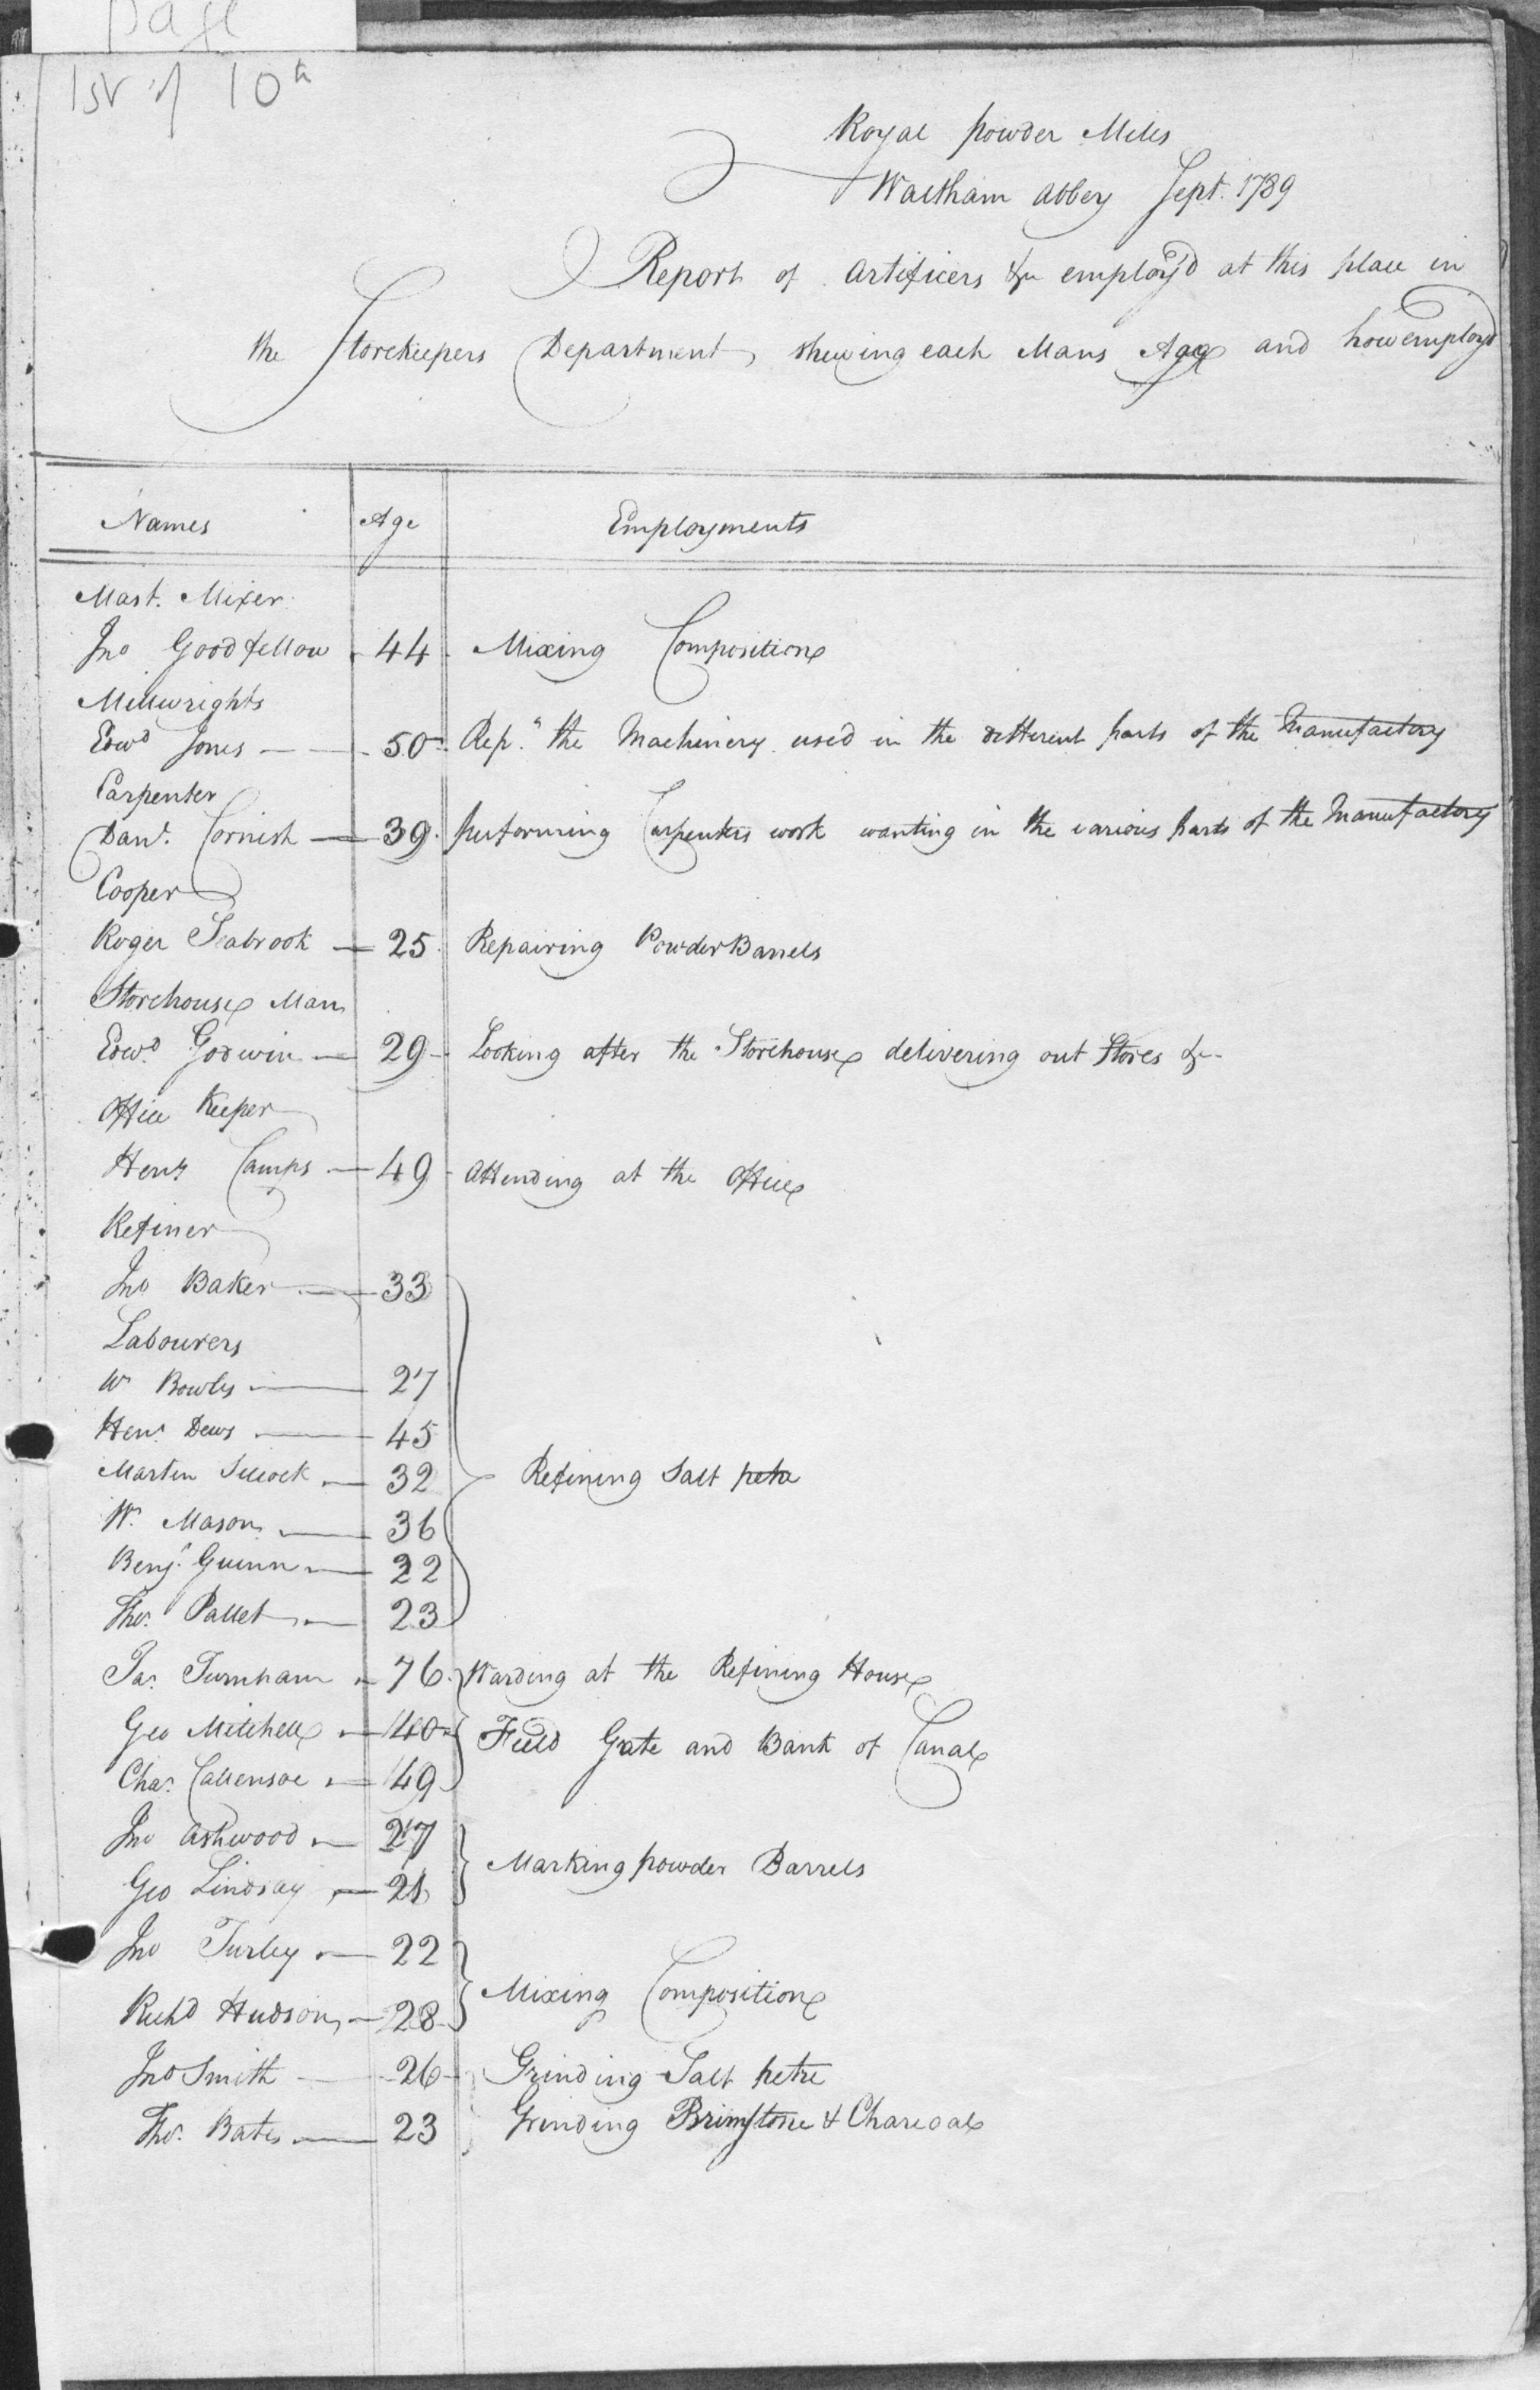 page
1st of 10th
Royal powder Mills
Waltham Abbey Sept. 1789
Report of Artificers &c employ'd at this place in
the Storekeepers Department, shewing each Mans Age and how employd
Names Age Employments
Mast. Mixer
Jno Goodfellow 44 Mixing Composition
Millwrights
Edwd Jones 50 Repg the Machinery used in the different parts of the Manufactory
Carpenter
Danl. Cornish 39 performing Carpenters work wanting in the various parts of the Manufactory
Cooper
Roger Seabrook 25 Repairing Powder Barrels
Storehouse Man
Edwd. Godwin 29 Looking after the Storehouse delivering out Stores &c
Office Keeper
Heny Camps 49 Attending at the Office
Refiner
Jno Baker 33
Labourers
Wm Bowles 27
Heny Dews 45
Martin Sillcock 32 Refining Salt petre
Wm. Mason 36
Benjn. Guinn 22
Thos. Pallet 23
Jas. Turnham 76 Warding at the Refining House
Geo Mitchell 40 Field Gate and Bank of Canal
Chas. 49
Jno Ashwood 27
Geo Lindsay 21 Marking powder Barrels
Jno Turley 22
Richd Hudson 28 Mixing Composition
Jno Smith 26 Grinding Salt petre
Thos. Bates 23 Grinding Brimstone & Charcoal